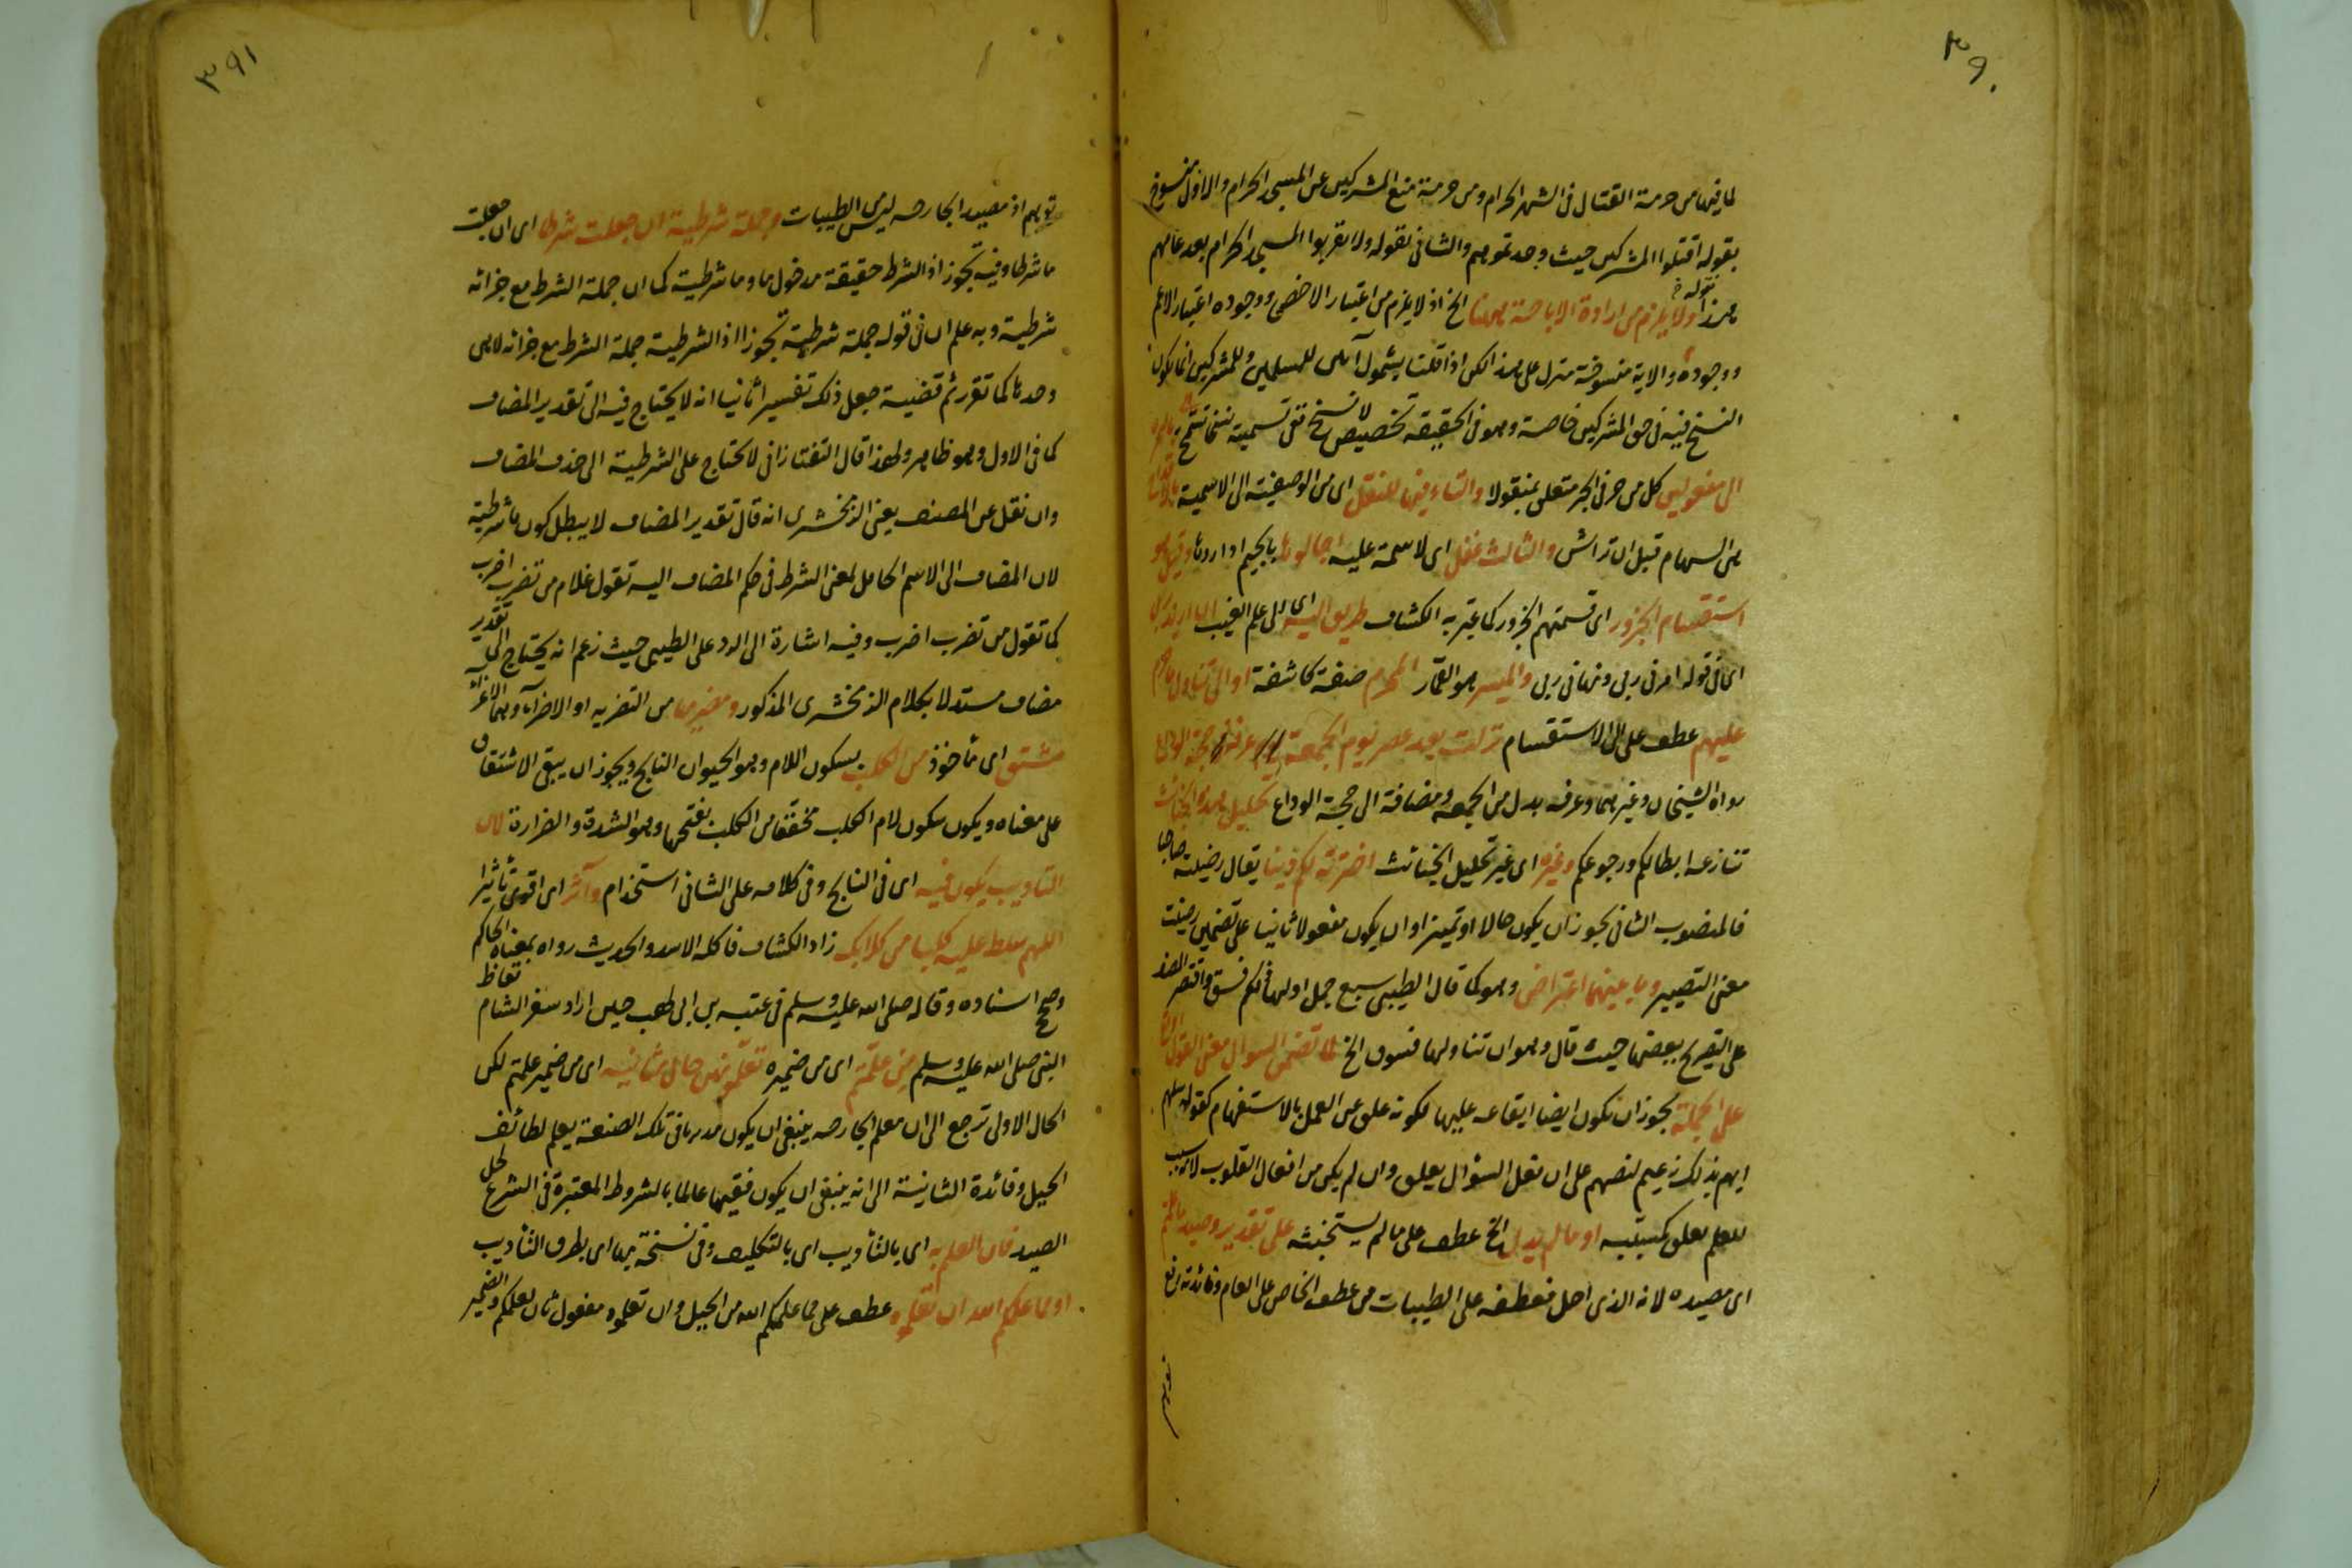 ٣٩٠
لما فيها من حرمة القتال فى الشهر الحرام ومن حرمة منع المشركين عن المسجد الحرام والاول منسوخ
بقوله اقتلوا المشركين حيث وجدتموهم والثانى بقوله ولا يقربوا المسجد الحرام بعد عامهم
هذا قوله ولا يلزم من ارادة الاباحة ههنا الخ اذ لا يلزم من اعتبار الاخص ووجوده اعتبار الاعم
ووجوده والاية منسوخة منزل على هذا لكن اذا قلنا بشمول آمين للمسلمين وللمشركين انما يكون
النسخ فيه فى حق المشركين خاصة وهو فى الحقيقة تخصيص لا نسخ ففى تسميته نسخا تسمح
الى مفعولين كل من حرفى الجر متعلق بمنقولا والتاء فيها للنقل اى من الوصفية الى الاسمية
هى السهام قبل ان تراش والثالث غفل اى لا سمة عليه اجالوها بالجيم اداروها وقيل هو
استقسام الجزور اى قسمتهم الجزور كما عبر به الكشاف طريق اليه اى الى علم الغيب
اى فى قوله امرنى ربى ونهانى ربى والميسر هو القمار المحرم صفة كاشفة او الى تناول ما حرم
عليهم عطف على الى الاستقسام نزلت بعد عصر يوم الجمعة عرفة حجة الوداع
رواه الشيخان وغيرهما وعرفة بدل من الجمعة ومضافة الى حجة الوداع تحليل هذه الخبائث
تنازعه ابطالكم ورجوعكم وغيره اى غير تحليل الخبائث اخترته لكم دينا يقال رضيت
فالمنصوب الثانى يجوز ان يكون حالا او تمييزا وان يكون مفعولا ثانيا على تضمين رضيت
معنى التصيير وما بينهما اعتراض وهو كما قال الطيبى سبع جمل اولها ذلكم فسق واقتصر المصنف
على التصريح ببعضها حيث قال وهو ان تناولها فسوق الخ لما تضمن السؤال معنى القول
على الجملة يجوز ان يكون ايضا ايقاعه عليها لكونه علق عن العمل بالاستفهام كقوله سلهم
ايهم بذلك زعيم لنصهم على ان فعل السؤال يعلق وان لم يكن من افعال القلوب لانه سبب
للعلم فعلق كمسببه او ما لم يدل الخ عطف على ما لم يستخبثه على تقدير وصيد ما علمتم
اى مصيده لانه الذى احل فعطفه على الطيبات من عطف الخاص على العام وفائدته دفع
٣٩١
توهم اذ مصيد الجارحه ليس من الطيبات وجملة شرطية ان جعلت شرطا اى ان جعلت
ما شرطا وفيه تجوز اذ الشرط حقيقة مدخول ما وما شرطية كما ان جملة الشرط مع جزائه
شرطية وبه علم ان فى قوله جملة شرطية تجوزا اذ الشرطية جملة الشرط مع جزائه لا هى
وحدها كما تقرر ثم قضية جعل ذلك تفسيرا ثانيا انه لا يحتاج فيه الى تقدير المضاف
كما فى الاول وهو ظاهر ولهذا قال التفتازانى لا تحتاج على الشرطية الى حذف المضاف
وان نقل عن المصنف يعنى الزمخشرى انه قال تقدير المضاف لا يبطل كون ما شرطية
لان المضاف الى الاسم الحامل لمعنى الشرط فى حكم المضاف اليه تقول غلام من تضرب اضرب
كما تقول من تضرب اضرب وفيه اشارة الى الرد على الطيبى حيث زعم انه يحتاج الى تقدير
مضاف مستدلا بكلام الزمخشرى المذكور ومضريها من التضريه او الاضراء وهما الاغراء
مشتق اى مأخوذ من الكلب بسكون اللام وهو الحيوان النابح ويجوز ان يبقى الاشتقاق
على معناه ويكون سكون لام الكلب مخففا من الكلب بفتحها وهو الشدة والضراوة لان
التاديب يكون فيه اى فى النابح وفى كلامه على الثانى استخدام وآثر اى اقوى تأثيرا
اللهم سلط عليه كلبا من كلابك زاد الكشاف فاكله الاسد والحديث رواه بمعناه الحاكم
وصحح اسناده وقاله صلى الله عليه وسلم فى عتبه بن ابى لهب حين اراد سفر الشام
النبى صلى الله عليه وسلم من علمتم اى من ضميره تعلمونهن حال ثانيه اى من ضمير علمتم لكن
الحال الاولى ترجع الى ان معلم الجارحه ينبغى ان يكون مدربا فى تلك الصنعة يعلم لطائف
الحيل وفائدة الثانية الى انه ينبغى ان يكون فقيها عالما بالشروط المعتبرة فى الشرع لحل
الصيد فان العلم به اى بالتأديب اى بالتكليف وفى نسخة بها اى بطرق التأديب
او مما علمكم الله ان تعلموه عطف على مما علمكم الله من الحيل وان تعلموه مفعول ثان لعلمكم والضمير